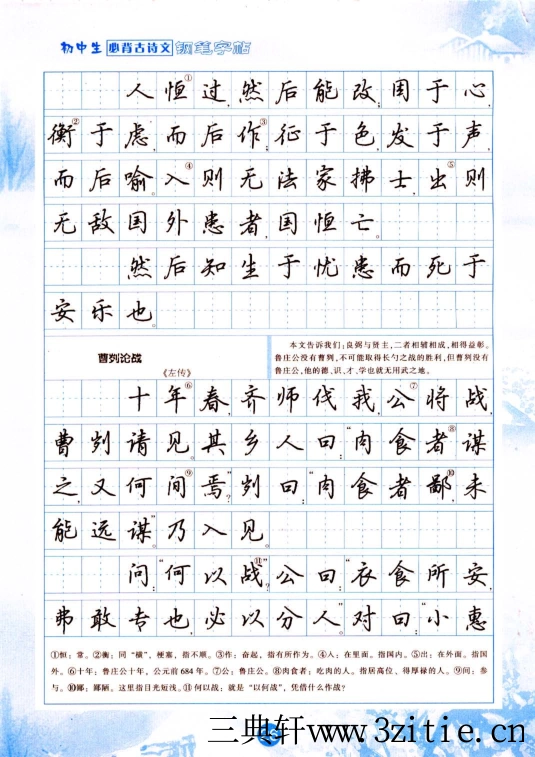 初中生 必背古诗文 钢笔字帖
人恒①过，然后能改；困于心，
衡②于虑，而后作③；征于色，发于声，
而后喻。入④则无法家拂士，出⑤则
无敌国外患者，国恒亡。
然后知生于忧患而死于
安乐也。
曹刿论战
《左传》
本文告诉我们：良弼与贤主，二者相辅相成，相得益彰。
鲁庄公没有曹刿，不可能取得长勺之战的胜利，但曹刿没有
鲁庄公，他的德、识、才、学也就无用武之地。
十年⑥春，齐师伐我。公⑦将战，
曹刿请见。其乡人曰：“肉食者⑧谋
之，又何间⑨焉？”刿曰：“肉食者鄙⑩，未
能远谋。”乃入见。
问：“何以战⑪？”公曰：“衣食所安，
弗敢专也，必以分人。”对曰：“小惠
①恒：常。②衡：同“横”，梗塞，指不顺。③作：奋起，指有所作为。④入：在里面。指国内。⑤出：在外面。指国
外。⑥十年：鲁庄公十年，公元前684年。⑦公：鲁庄公。⑧肉食者：吃肉的人。指居高位、得厚禄的人。⑨间：参
与。⑩鄙：鄙陋。这里指目光短浅。⑪何以战：就是“以何战”，凭借什么作战？
三典轩www.3zitie.cn